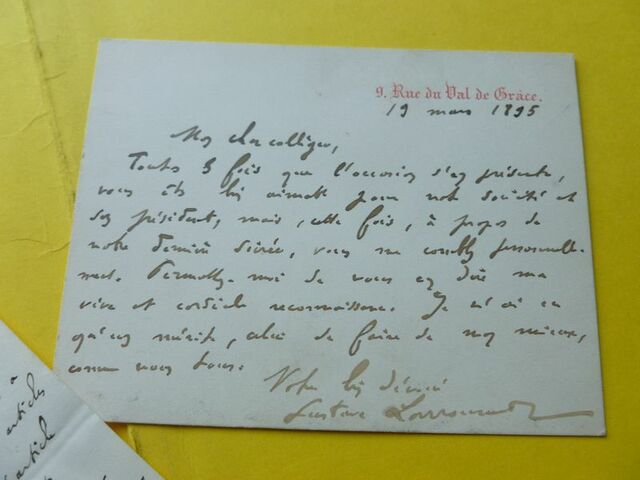 9. Rue du Val de Grâce.
19 mars 1895
Mon cher collègue,
Toutes les fois que l'occasion s'en présente,
vous êtes bien aimable pour notre société et
son président, mais, cette fois, à propos de
notre dernière soirée, vous me comblez personnelle-
ment. Permettez-moi de vous en dire ma
vive et cordiale reconnaissance. Je n'ai eu
qu'un mérite, celui de faire de mon mieux,
comme nous tous.
Votre bien dévoué
Gustave Larroumet
à
articles
article